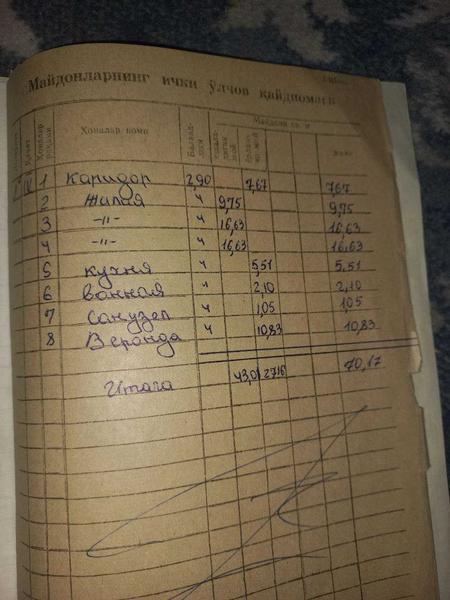 Майдонларнинг ички ўлчов қайдномаси
Қават
Хоналар рақами
Хоналар номи
Баландлиги
Майдони кв. м
жами
I IV 1 Каридор 2,90 7,67 7,67
2 Жилая ч 9,75 9,75
3 -"- ч 16,63 16,63
4 -"- ч 16,63 16,63
5 кухня ч 5,51 5,51
6 ванная ч 2,10 2,10
7 санузел ч 1,05 1,05
8 Веранда ч 10,83 10,83
Итага 43,01 27,16 70,17